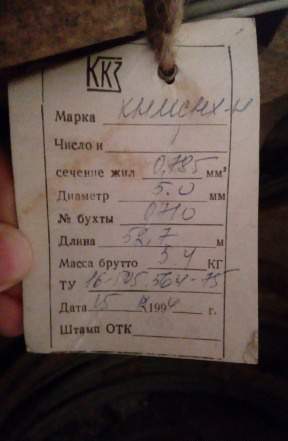 ККЗ
Марка КНМСНХ-Н
Число и 1
сечение жил 0,785 мм²
Диаметр 5.0 мм
№ бухты 0710
Длина 52,7 м
Масса брутто 5 4 КГ
ТУ 16-505.564-75
Дата 15 1994 г.
Штамп ОТК